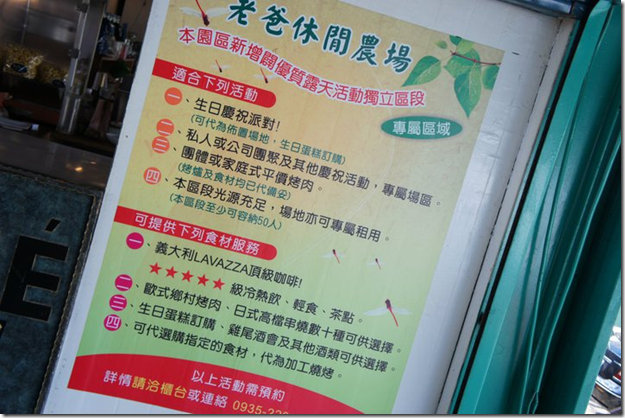 老爸休閒農場
本園區新增闢優質露天活動獨立區段
適合下列活動
專屬區域
一、生日慶祝派對!
(可代為佈置場地，生日蛋糕訂購)
二、私人或公司團聚及其他慶祝活動，專屬場區。
三、團體或家庭式平價烤肉。
(烤爐及食材均已代備妥)
四、本區段光源充足，場地亦可專屬租用。
(本區段至少可容納50人)
可提供下列食材服務
一、義大利LAVAZZA頂級咖啡!
★★★★★級冷熱飲、輕食、茶點。
二、歐式鄉村烤肉、日式高檔串燒數十種可供選擇。
三、生日蛋糕訂購、雞尾酒會及其他酒類可供選擇。
四、可代選購指定的食材，代為加工燒烤。
以上活動需預約
詳情請洽櫃台或連絡 0935-22
É